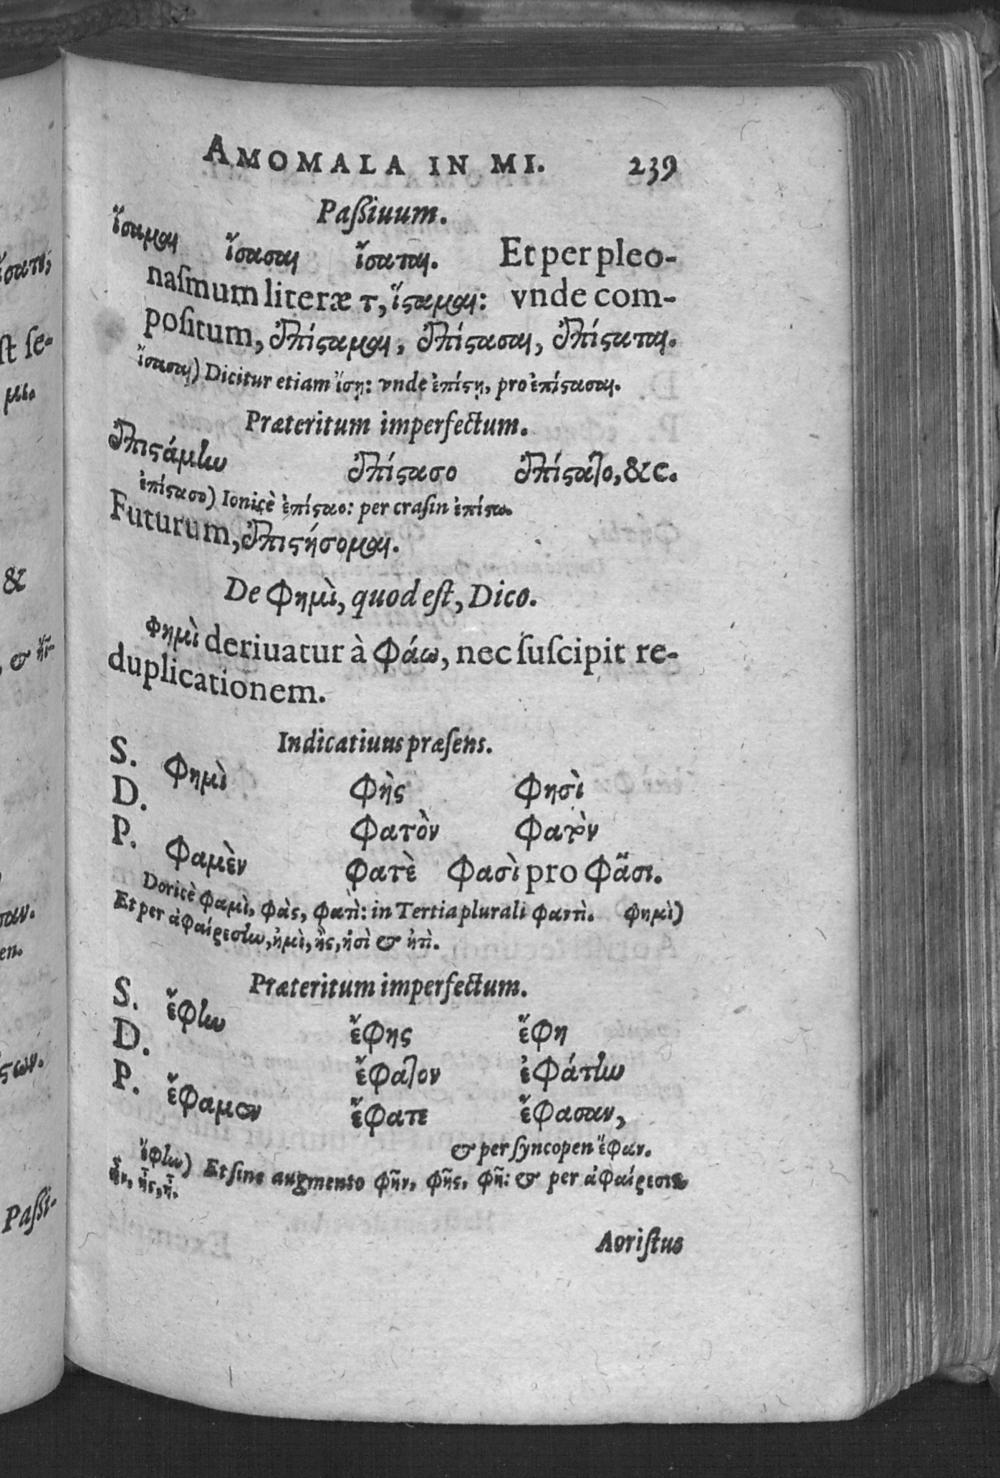 AMOMALA IN MI. 239
Paſſiuum.
ἴσαμαι ἴσασαι ἴσαται. Et per pleo-
naſmum literæ τ, ἵϛαμαι: vnde com-
poſitum, ἐπίϛαμαι, ἐπίϛασαι, ἐπίϛαται.
ἴσασαι) Dicitur etiam ἴσῃ: vnde ἐπίϛῃ, pro ἐπίϛασαι.
Præteritum imperfectum.
ἐπιϛάμην ἐπίϛασο ἐπίϛατο, &c.
ἐπίϛασο) Ionicè ἐπίϛαο: per craſin ἐπίϛω.
Futurum, ἐπιϛήσομαι.
De Φημὶ, quod eſt, Dico.
Φημὶ deriuatur à Φάω, nec ſuſcipit re-
duplicationem.
Indicatiuus præſens.
S. Φημὶ Φὴς Φησὶ
D. Φατὸν Φατὸν
P. Φαμὲν Φατὲ Φασὶ pro Φᾶσι.
Doricè φαμὶ, φὰς, φατὶ: in Tertia plurali φαντὶ. φημὶ)
Et per ἀφαίρεσιν, ἠμὶ, ἠς, ἠσὶ & ἠτὶ.
Præteritum imperfectum.
S. ἔφην ἔφης ἔφη
D. ἔφατον ἐφάτην
P. ἔφαμεν ἔφατε ἔφασαν,
& per ſyncopen ἔφαν.
ἔφην) Et ſine augmento φῆν, φῆς, φῆ: & per ἀφαίρεσιν
ἦν, ἦς, ἦ.
Aoriſtus